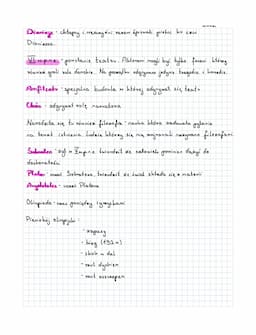 Dionizje - chłopcy i mężczyźni razem śpiewali pieśni ku czci
Dionizosa.
V w p.n.e. - powstanie teatru. Aktorem mogli być tylko faceci którzy
również grali role damskie. Na początku odgrywano jedynie tragedie i komedie.
Amfiteatr - specjalna budowla w której odgrywał się teatr
Chór - odgrywał rolę narratora
Narodziła się tu również filozofia - nauka która zadawała pytania
na temat istnienia, ludzie którzy się nią zajmowali nazywano filozofami
Sokrates - żył w V w p.n.e. twierdził że człowiek powinien dążyć do
doskonałości
Platon - uczeń Sokratesa, twierdził że świat składa się z materii
Arystoteles - uczeń Platona
Olimpiada - czas pomiędzy igrzyskami
Pięciobój olimpijski:
- zapasy
- bieg (192m)
- skok w dal
- rzut dyskiem
- rzut oszczepem